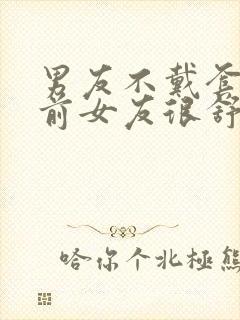 男友不戴套
前女友很舒
哈你个北極熊